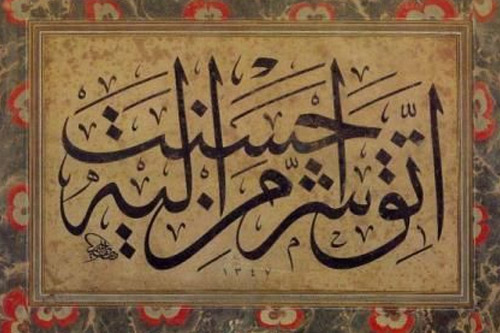 اتّق شرّ من احسنت اليه
١٣٤٧